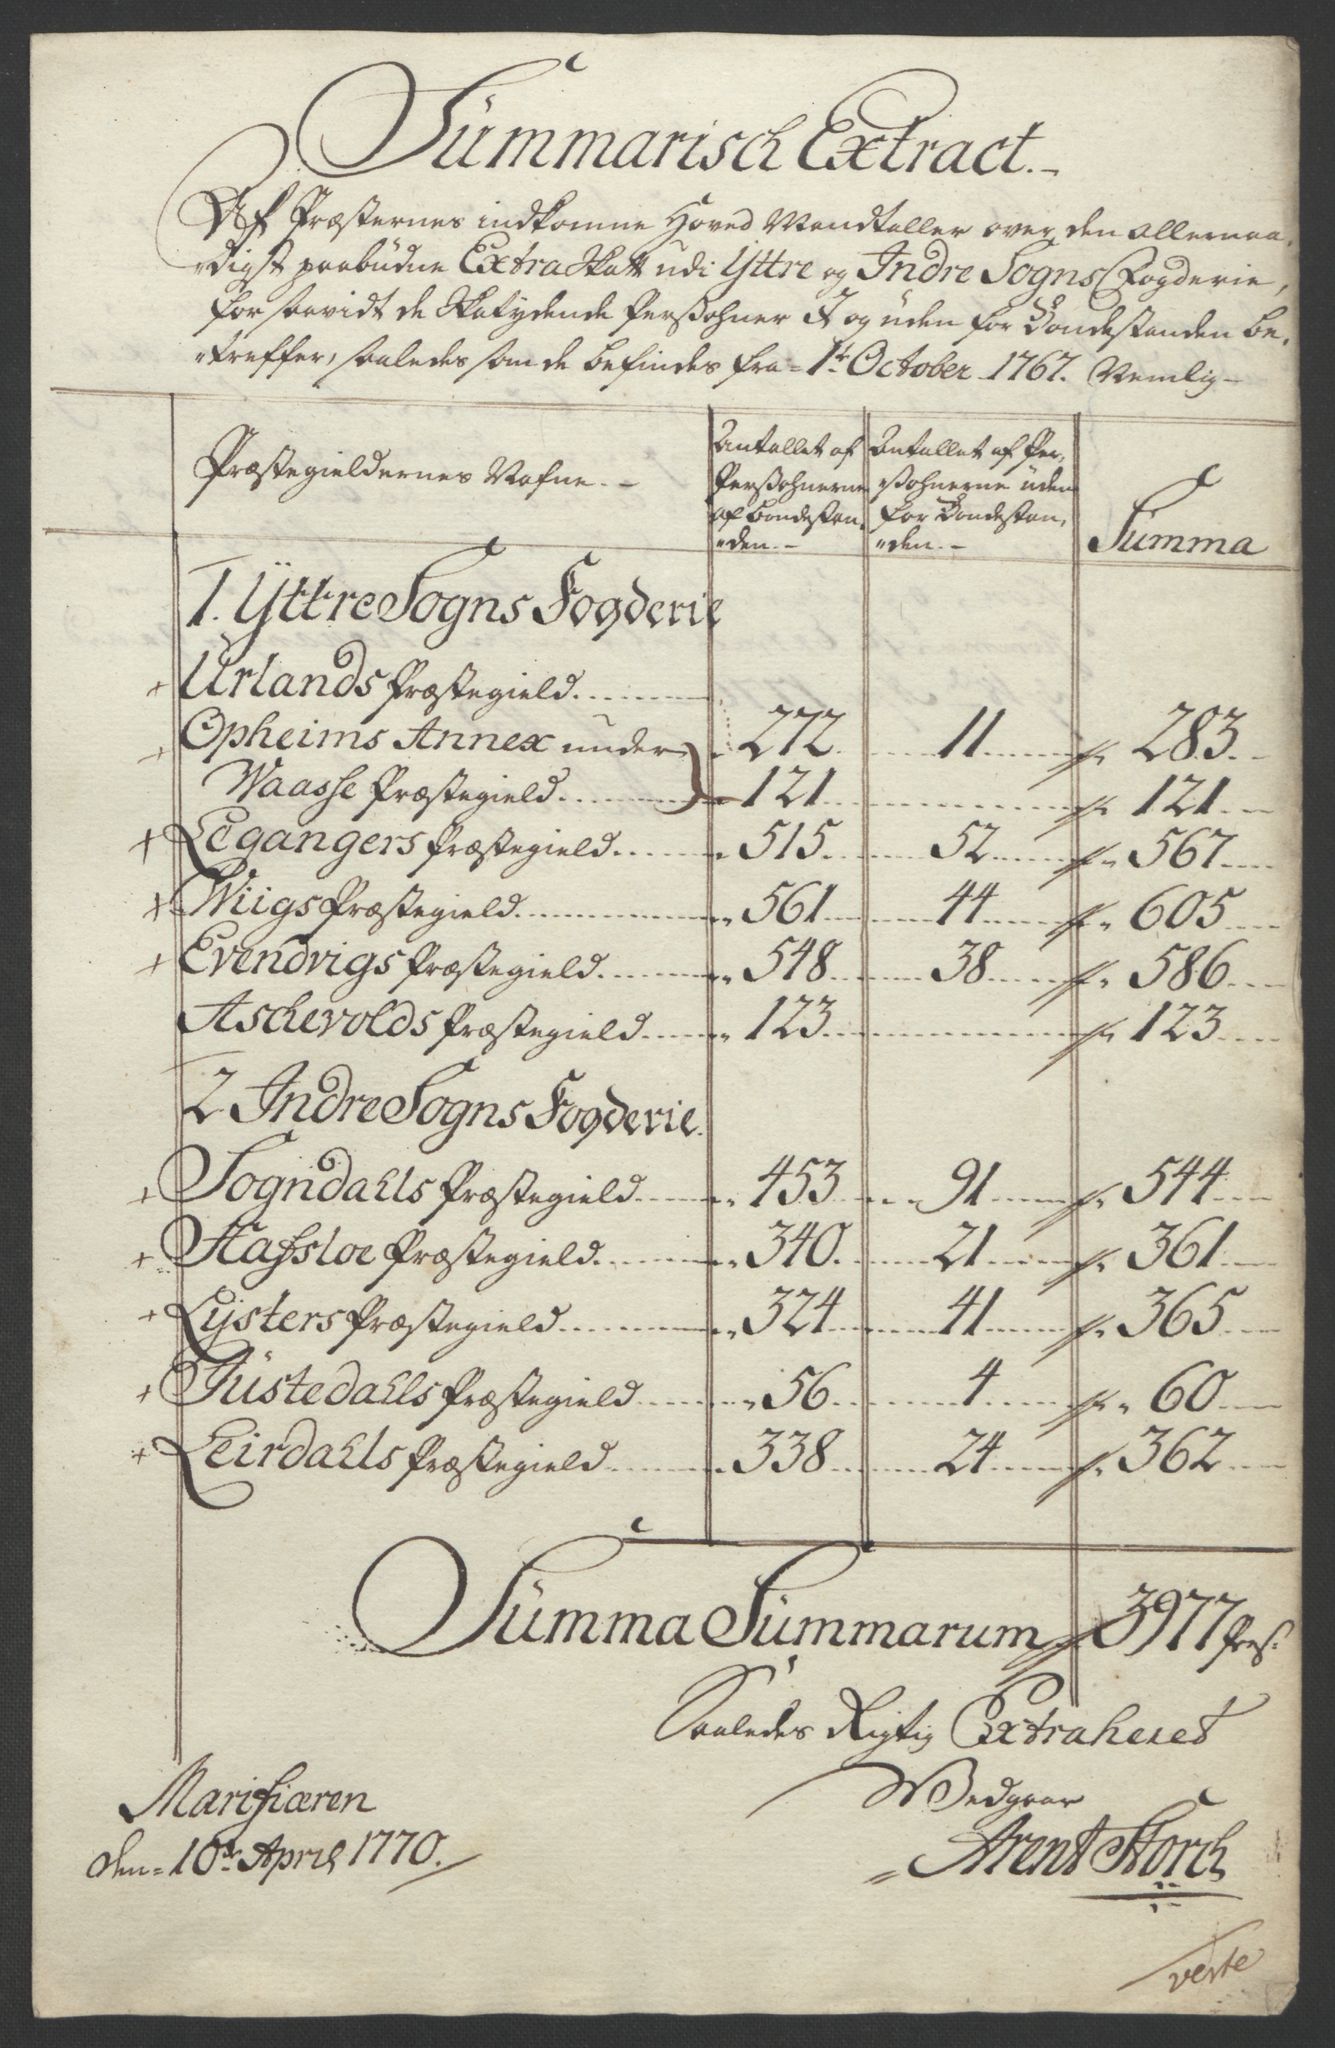 Summarisch Extract.
Af Præsternes indkomne Hoved Mandtaller over den allernaa-
digst paabudne Extra Skatt udi Yttre og Indre Sogns Fogderie,
for saavidt de Skatydende Persohner J og uden for Bondestanden be-
treffer, saaledes som de befindes fra 1te October 1767. Nemlig
Præstegieldernes Nafne.
Antallet af Persohnerne af bondestanden.
Antallet af Persohnerne uden for Bondestanden.
Summa
1. Yttre Sogns Fogderie
+ Urlands Præstegield 272 11 283
Opheims Annex under
Waasse Præstegield 121 121
+ Legangers Præstegield 515 52 567
+ Wiigs Præstegield 561 44 605
+ Evendvigs Præstegield 548 38 586
Aschevolds Præstegield 123 123
2 Indre Sogns Fogderie.
+ Sogndahls Præstegield 453 91 544
+ Hafsloe Præstegield 340 21 361
+ Lysters Præstegield 324 41 365
+ Justedahls Præstegield 56 4 60
+ Leirdahls Præstegield 338 24 362
Summa Summarum 3977 Pers:
Saaledes Rigtig Extraheret
Vedgaar
Marifiæren
den 10de April 1770.
Arent Storch
verte